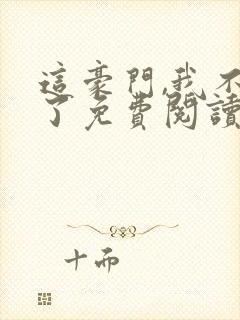 這豪門,我不
了免費閱讀
十而